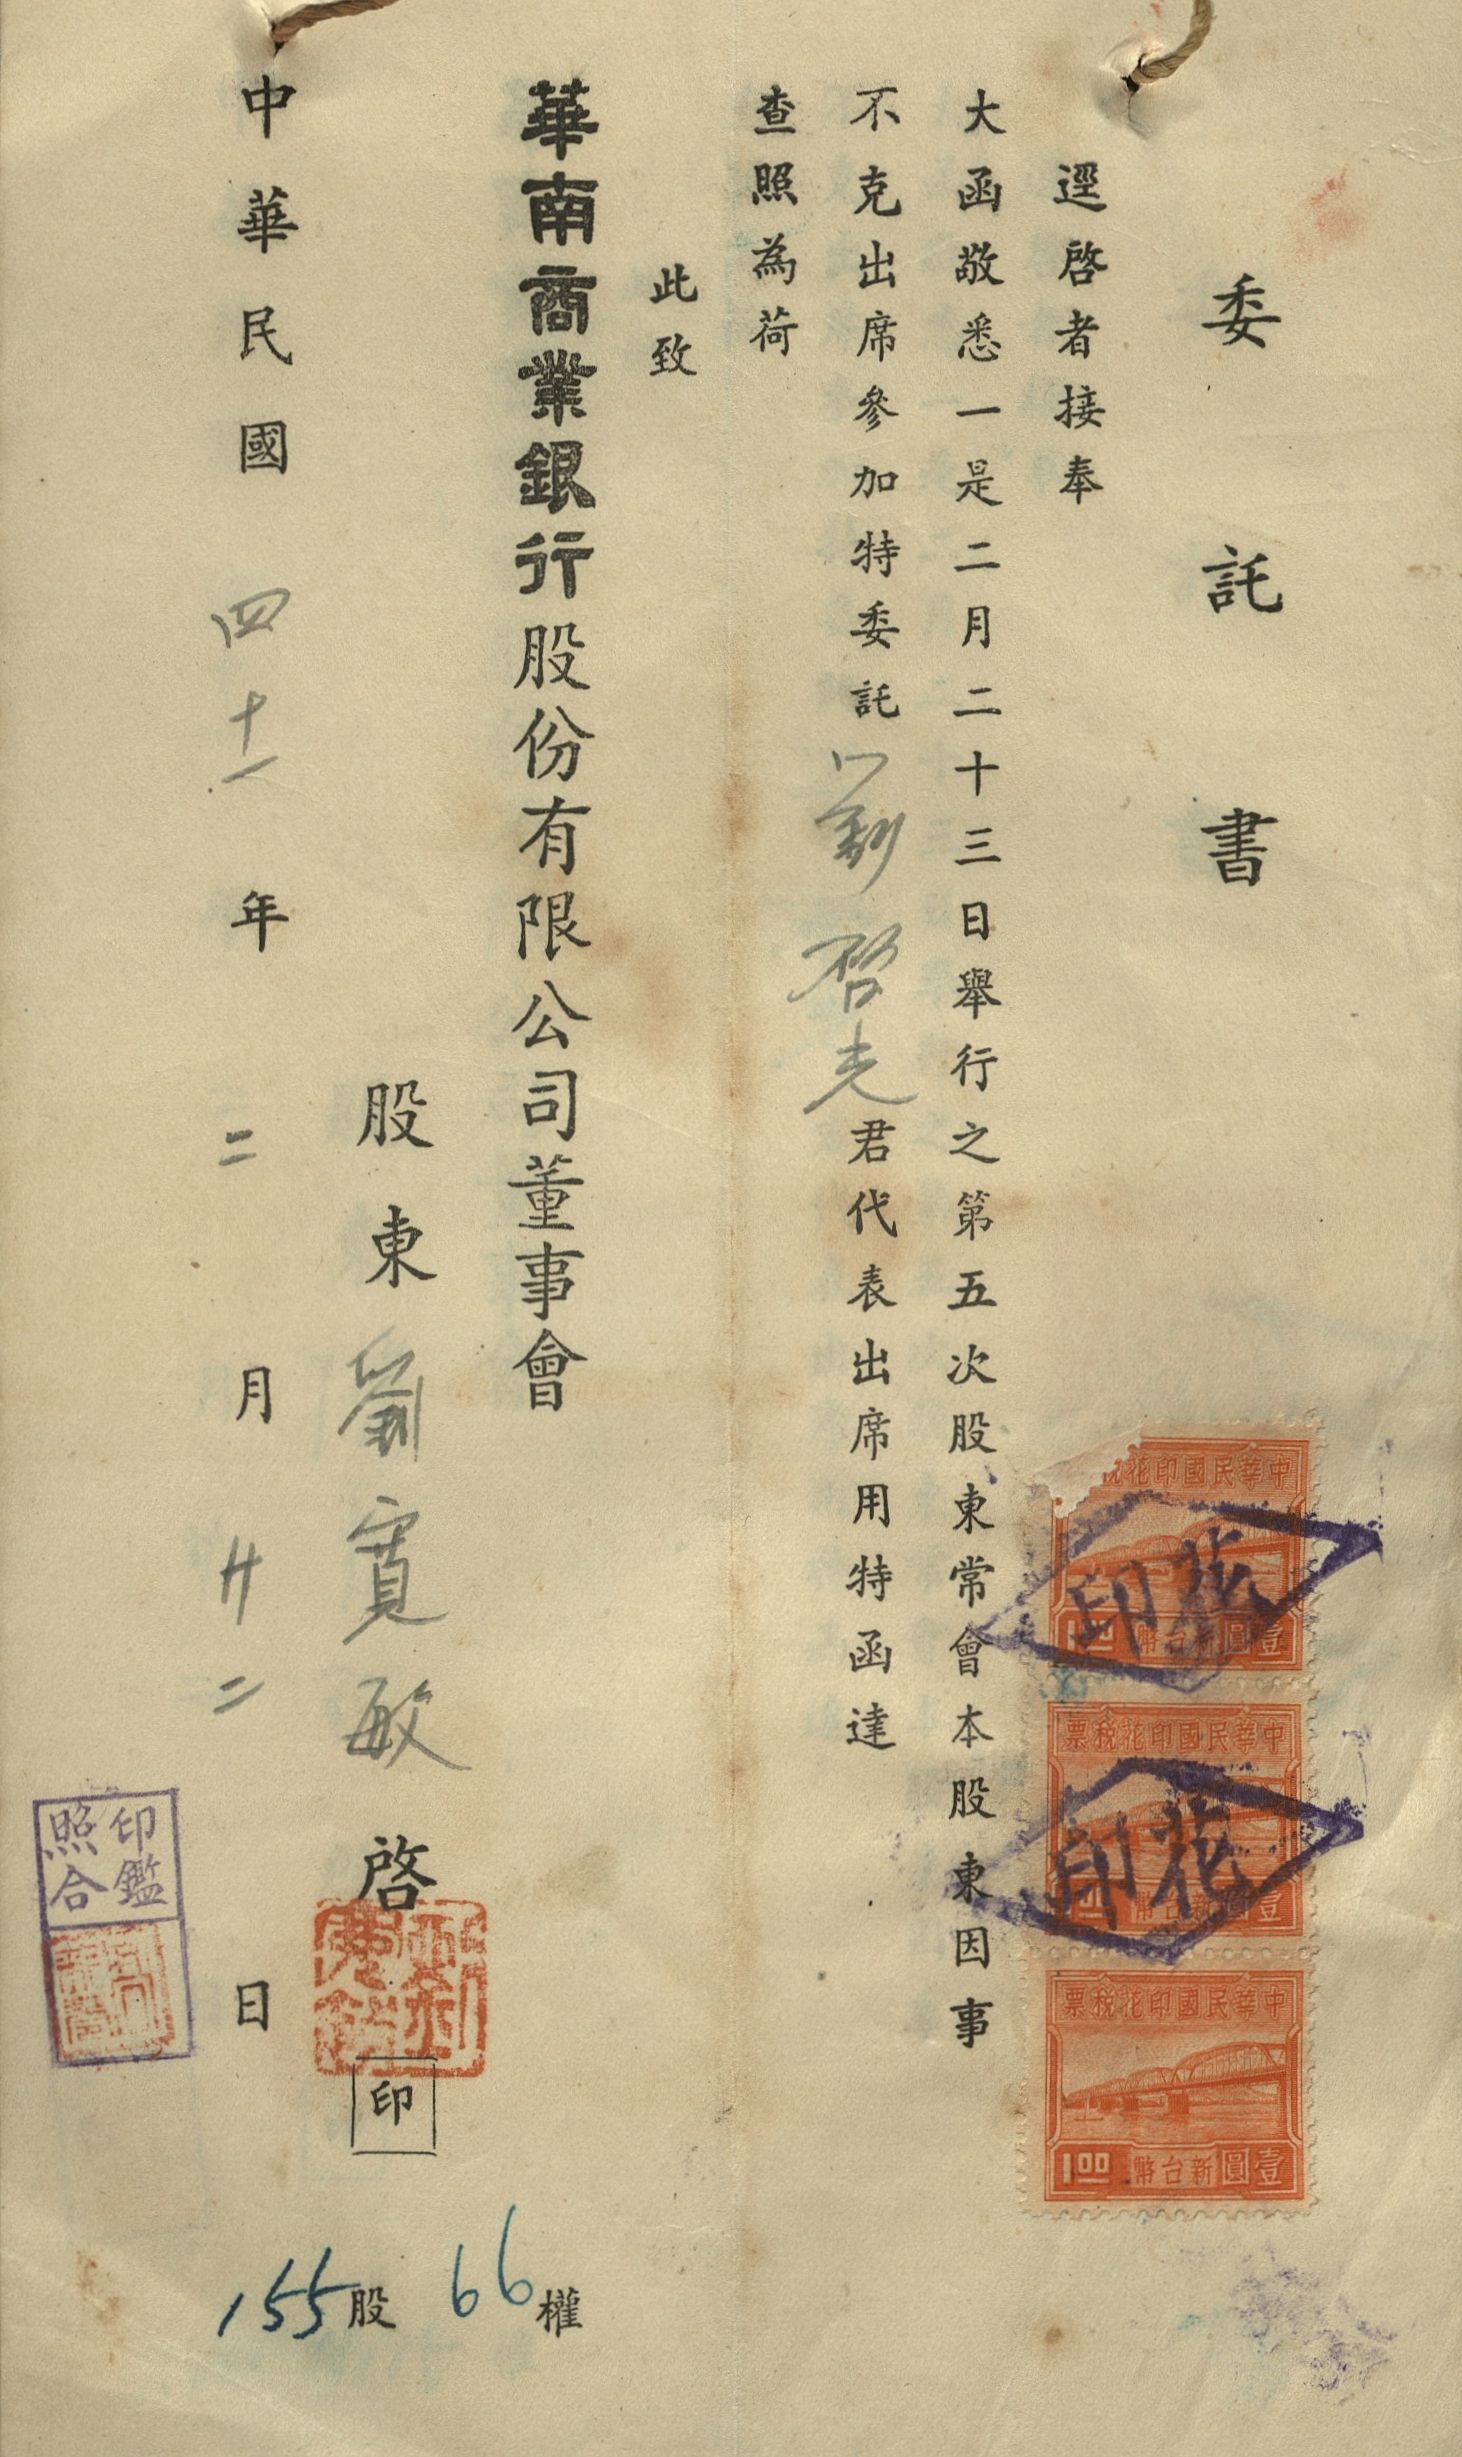 委託書
逕啓者接奉
大函敬悉一是二月二十三日舉行之第五次股東常會本股東因事
不克出席參加特委託劉啓光君代表出席用特函達
查照為荷
此致
華南商業銀行股份有限公司董事會
股東劉寬敏啓
印
中華民國四十一年二月廿二日
印鑑
照合
155股 66權
中華民國印花稅
1.00 幣台新圓壹
花印
票稅花印國民華中
幣台新圓壹
花印
票稅花印國民華中
1.00 幣台新圓壹